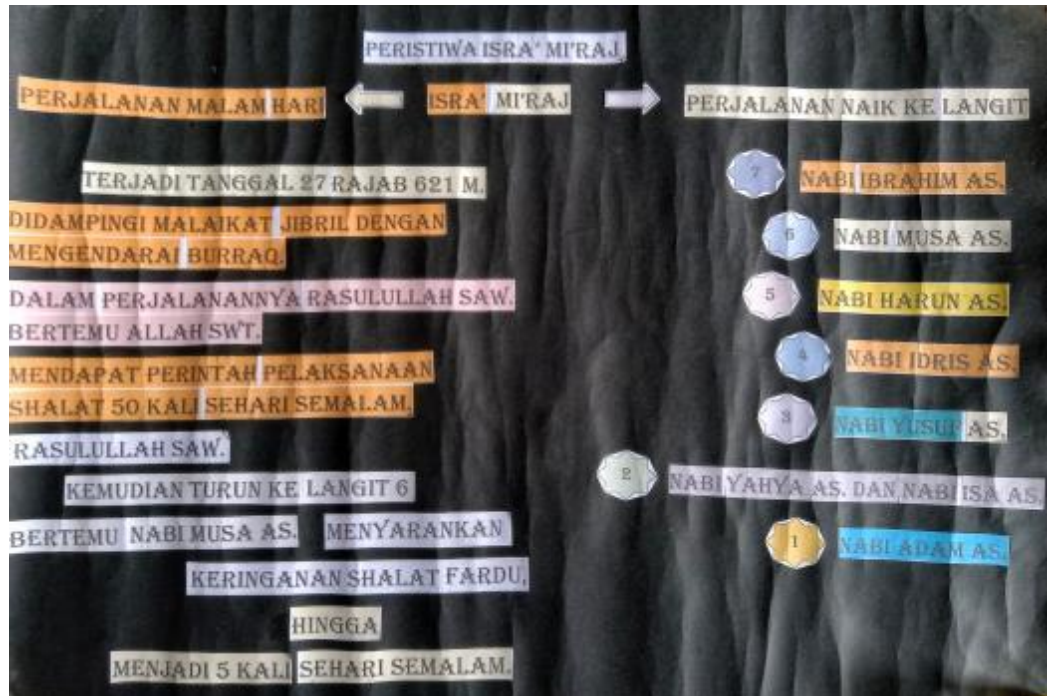 PERISTIWA ISRA' MI'RAJ
PERJALANAN MALAM HARI
ISRA' MI'RAJ
PERJALANAN NAIK KE LANGIT
TERJADI TANGGAL 27 RAJAB 621 M.
DIDAMPINGI MALAIKAT JIBRIL DENGAN
MENGENDARAI BURRAQ.
DALAM PERJALANANNYA RASULULLAH SAW.
BERTEMU ALLAH SWT.
MENDAPAT PERINTAH PELAKSANAAN
SHALAT 50 KALI SEHARI SEMALAM.
RASULULLAH SAW.
KEMUDIAN TURUN KE LANGIT 6
BERTEMU NABI MUSA AS. MENYARANKAN
KERINGANAN SHALAT FARDU,
HINGGA
MENJADI 5 KALI SEHARI SEMALAM.
7 NABI IBRAHIM AS.
6 NABI MUSA AS.
5 NABI HARUN AS.
4 NABI IDRIS AS.
3 NABI YUSUF AS.
2 NABI YAHYA AS. DAN NABI ISA AS.
1 NABI ADAM AS.